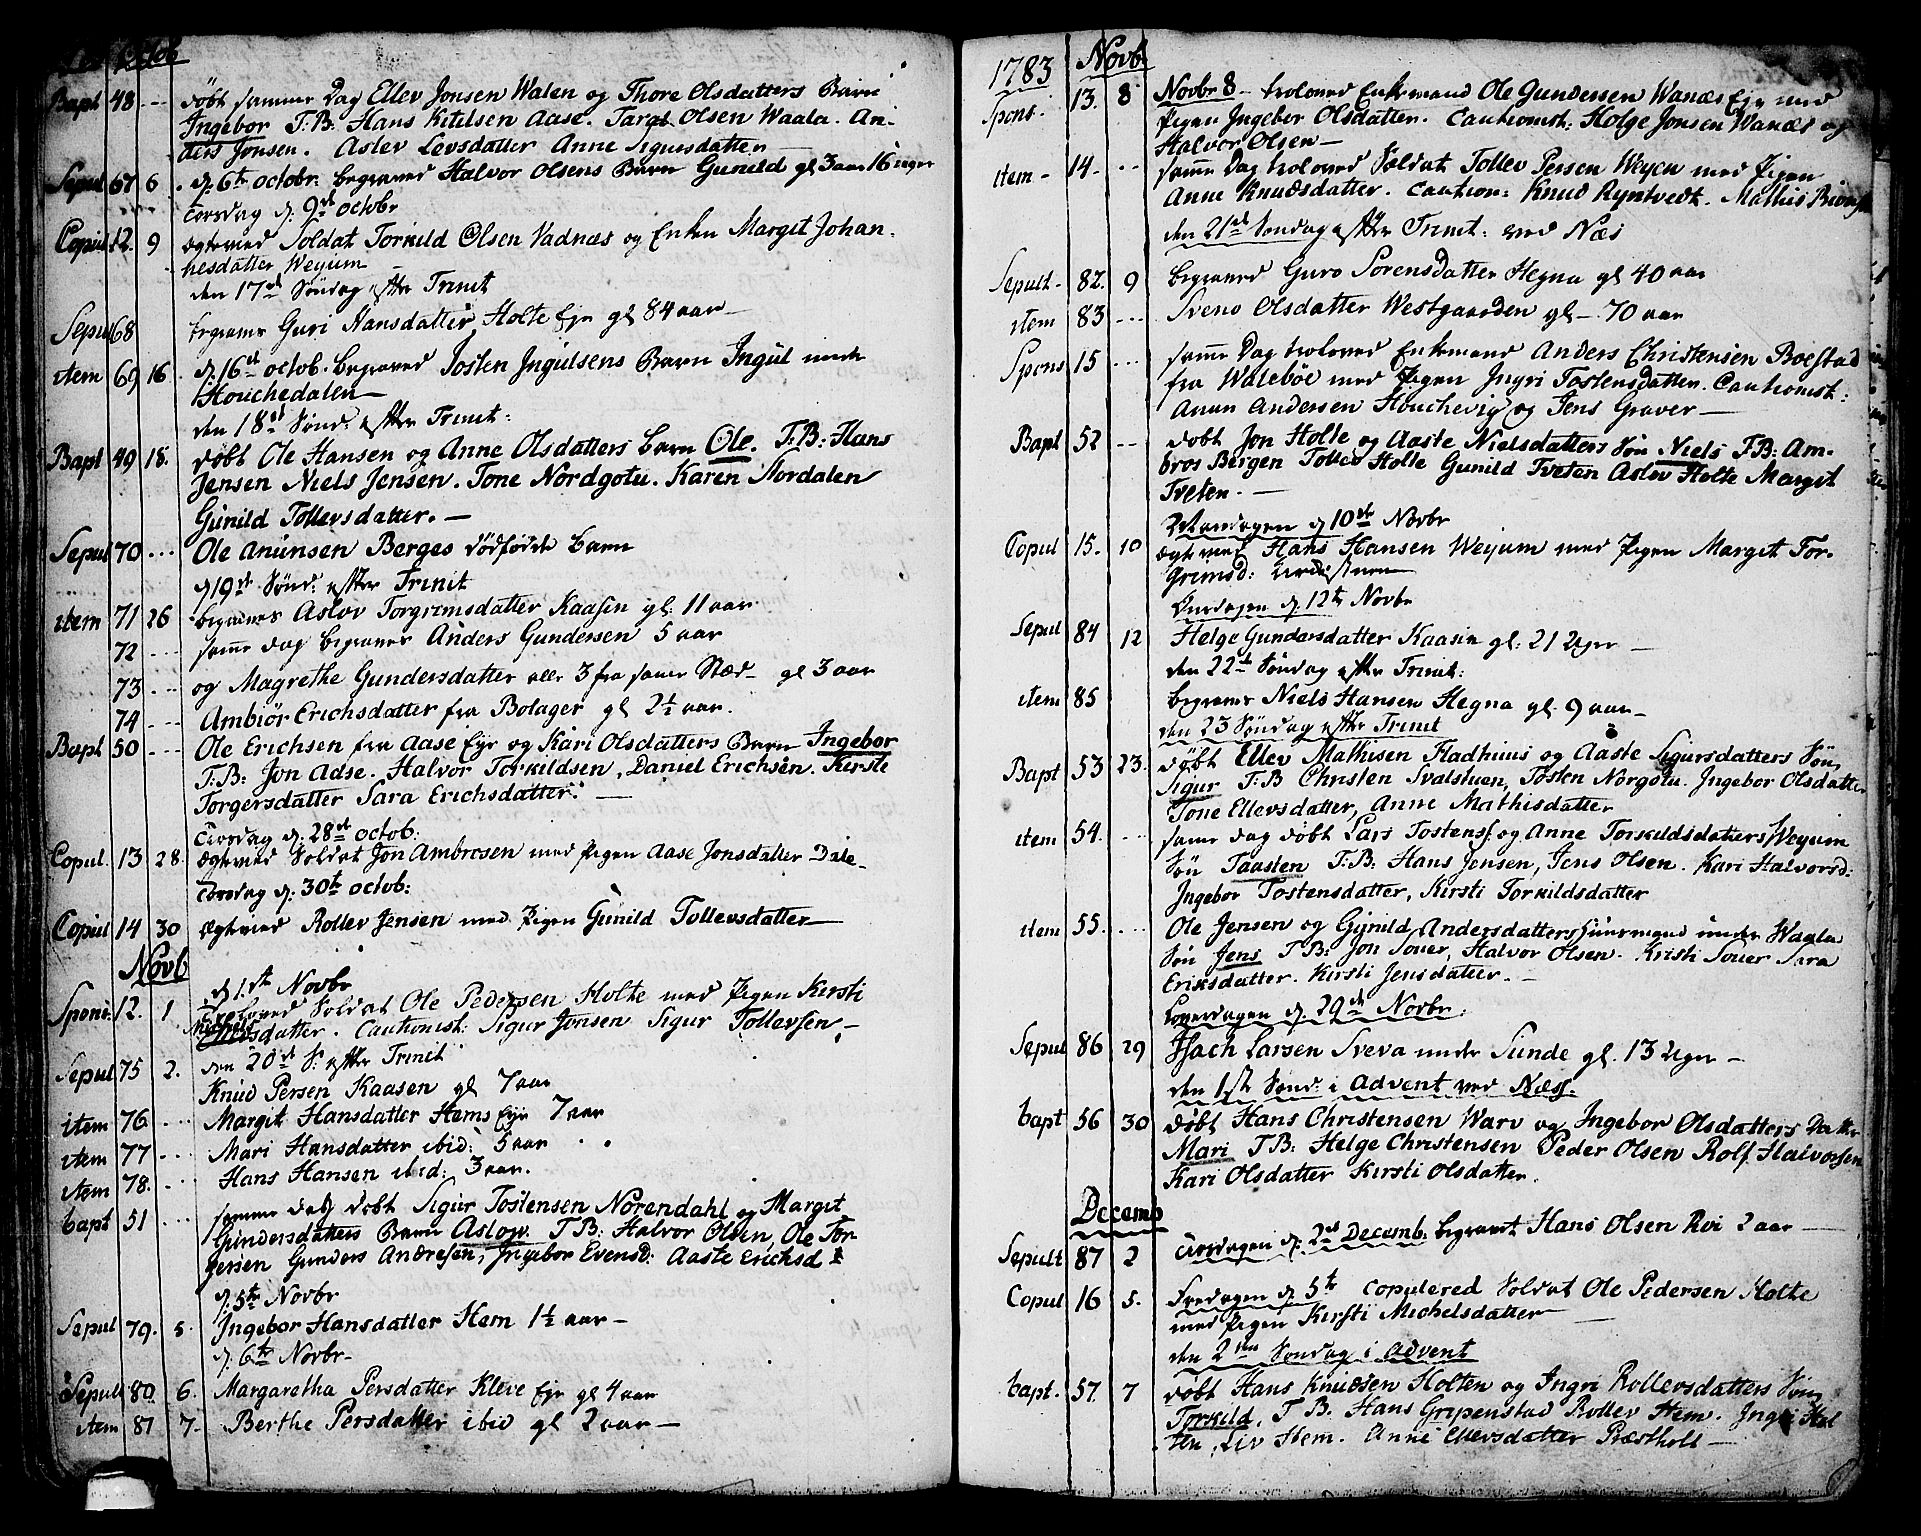 Octob
Bapt 48 --- döbt samme Dag Ellev Jonsen Walen og Thore Olsdatters Barn
Ingebor T:B: Hans Ketelsen Aase. Taral Olsen Waala. An-
ders Jonsen. Aslev Levsdatter Anne Sigursdatter
Sepul 67 6 d. 6te octobr: begraved Halvor Olsens Barn Gunild gl 3 aar 16 uger
Torsdag d. 9de octobr
Copul 12. 9 ægtevied Soldat Torkild Olsen Vadnæs og Enken Margit Johan-
nesdatter Weyum
den 17de Söndag efter Trinit
Sepul 68 begravet Guri Hansdatter Holte Eje gl 84 aar
item 69 16 d. 16de octob. begraved Josten Ingulsens Barn Ingul under
Houchedalen
den 18de Sönd. efter Trinit:
Bapt 49 18. döbt Ole Hansen og Anne Olsdatters barn Ole. T.B: Hans
Jensen Niels Jensen. Tone Nordgotu. Karen Nordalen
Gunild Tollevsdatter. —
Sepul 70 --- Ole Anunsen Berges dödfödte barn
d 19de Sönd. efter Trinit
item 71 26 begraves Aslov Torgrimsdatter Kaasen gl. 11 aar
72 --- samme dag begraves Anders Gundersen 5 aar
73 --- og Magrethe Gundersdatter alle 3 fra samme Stæd gl 3 aar
74 --- Ambiör Erichsdatter fra Bolager gl 2½ aar.
Bapt 50 --- Ole Erichsen fra Aase Eje og Kari Olsdatters Barn Ingebor
T:B: Jon Aase. Halvor Torkildsen, Daniel Erichsen. Kirsti
Torgersdatter Sara Erichsdatter. —
Tirsdag d. 28de octob:
Copul. 13 28. ægtevied Soldat Jon Ambrosen med Pigen Aase Jonsdatter Dale-
Torsdag d. 30te octob:
Copul 14 30 ægtevied Rollev Jensen med Pigen Gunild Tollevsdatter
Novb
d 1.te Novbr
Spons. 12. 1 troloved Soldat Ole Pedersen Holte med Pigen Kirsti
Michelsdatter. Cautionist: Sigur Jonsen Sigur Tollevsen
den 20de S: efter Trinit
Sepul 75 2. Knud Persen Kaasen gl 7 aar
item 76 --- Margit Hansdatter Hems Eje 7 aar
item 77 --- Mari Hansdatter ibid: 5 aar
item 78. --- Hans Hansen ibid: 3 aar.
bapt 51 --- samme dag döbt Sigur Tostensen Norendahl og Margit
Gundersdatters Barn Aslow. T B: Halvor Olsen, Ole Tor-
jersen Gunders Andresen, Ingebor Evensd: Aaste Erichsd
d. 5te Novbr
Sepul 79. 5. Ingebor Hansdatter Hem 1½ aar
d. 6te Novbr
Sepul 80. 6. Margaretha Persdatter Kleve Eje gl 4 aar
item 81 7. Berthe Persdatter ibid gl 2 aar
1783 Novb
Spons. 13. 8 Novbr 8 troloved Enkemand Ole Gundersen Wanæs Eje med
Pigen Ingebor Olsdatter. Cautionist: Holge Jonsen Wanæs og
Halvor Olsen
item 14. --- samme Dag troloved Soldat Tollev Persen Weyen med Pigen
Anne Knudsdatter. Caution: Knud Ryntvedt. Mathis
den 21de Söndag efter Trinit: ved Næs
Sepult 82. 9 begraved Guro Sorensdatter Hegna gl 40 aar
item 83 --- Sveno Olsdatter Westgaarden gl 70 aar
Spons 15 --- samme Dag troloved Enkemand Anders Christensen Boestad
fra Waleböe med Pigen Ingri Tostensdatter. Cautionist:
Anun Andersen Houchevig og Jens Graver
Bapt 52 --- döbt Jon Holte og Aaste Nielsdatters Sön Niels T B: Am-
bros Bergen Tollev Holte Gunild Tveten Aslov Holte Margit
Tveten. —
Mandagen d 10de Novbr
Copul 15. 10 ægtevied Hans Hansen Weyum med Pigen Margit Tor-
grimsd:
Onsdagen d. 12te Novbr
Sepul 84 12 Helge Gundersdatter Kaasen gl: 21 Uger
den 22de Söndag efter Trinit:
item 85 begraves Niels Hansen Hegna gl. 9 aar
den 23 Söndag efter Trinit
Bapt 53 23. döbt Ellev Mathisen Fladhuus og Aaste Sigursdatters Sön
Sigur T:B Christen Svalstuen, Tosten Norgotu. Ingebor Olsdatter
Tone Ellevsdatter, Anne Mathisdatter
item 54. --- samme dag döbt Lars Tostens. og Anne Torkildsdatters Weyum
Sön Taasten T.B: Hans Jensen, Jens Olsen. Kari Halvorsd:
Ingebor Tostensdatter, Kirsti Torkildsdatter
item 55. --- Ole Jensen og Gunild Andersdatters Huusmand under Waala
Sön Jens T B: Jon Souer, Halvor Olsen. Kristi Souer Sara
Eriksdatter. Kirsti Jensdatter.
Löverdagen d. 29de Novbr.
Sepul 86 29 Isach Larsen Sveva under Sunde gl. 13 Uger
den 1ste Sönd: i Advent ved Næss.
bapt 56 30 döbt Hans Christensen Warv og Ingebor Olsdatters Datter
Mari T B: Helge Christensen Peder Olsen Rolf Halvorsen
Kari Olsdatter Kirsti Olsdatter.
Decemb
Sepult 87 2 Tirsdagen d. 2de Decemb: begravet Hans Olsen Roi 2 aar
Copul 16 5. Fredagen d 5te copulered Soldat Ole Pedersen Holte
med Pigen Kirsti Michelsdatter
den 2den Söndag i Advent
bapt. 57. 7 döbt Hans Knudsen Holten og Ingri Rollevsdatters Sön
Torkild. T B. Hans Gripenstad Rollev Hem. Ingri Hol-
ten, Liv Hem. Anne Ellevsdatter Præstholt